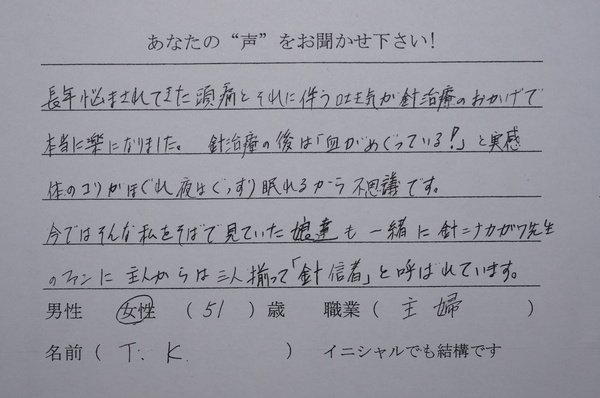 あなたの “声” をお聞かせ下さい!
長年悩まされてきた頭痛とそれに伴う吐き気が針治療のおかげで
本当に楽になりました。 針治療の後は「血がめぐっている!」と実感
体のコリがほぐれ夜はぐっすり眠れるから不思議です。
今ではそんな私をそばで見ていた娘達も一緒に針ニナカガワ先生
のファンに 主人からは三人揃って「針信者」と呼ばれています。
男性 女性 ( 51 ) 歳 職業 ( 主婦 )
名前 ( T. K. ) イニシャルでも結構です